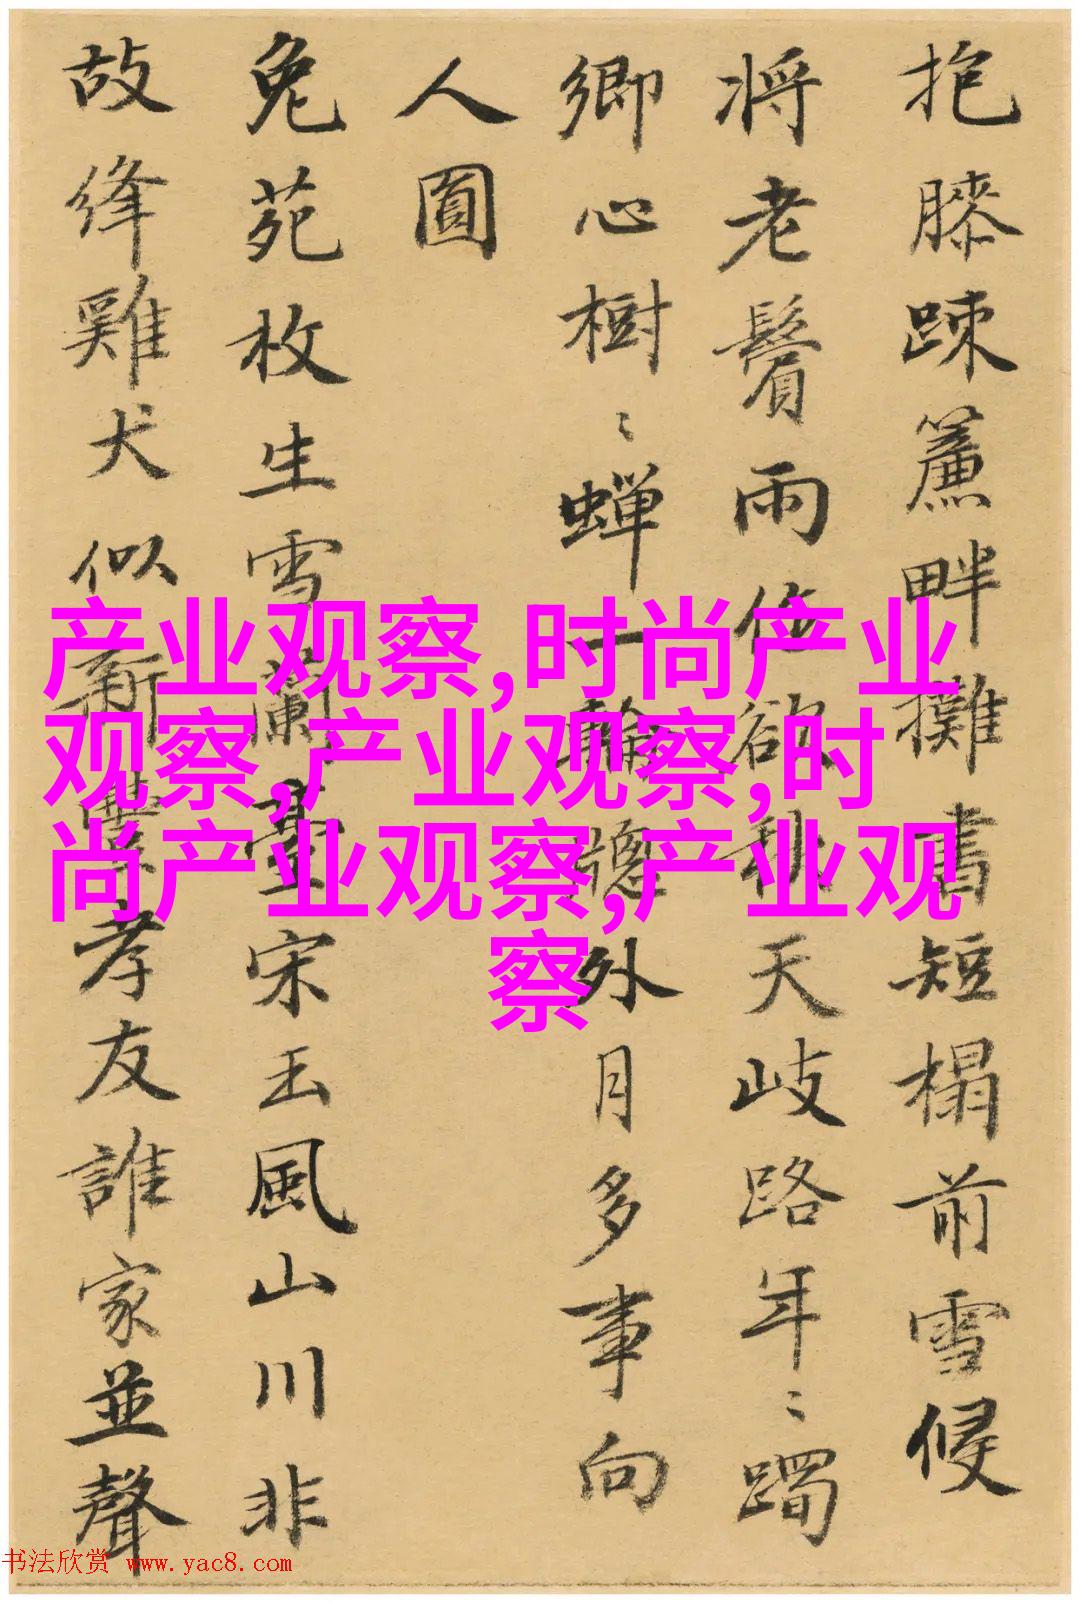 抱膝踈簾畔攤書短榻前雪侵
将老鬢雨作欲秋天岐路年〻躅
鄉心樹〻蝉一輪牕外月多事向
人圓
兔苑枚生雪蘭臺宋玉風山川非
故絳雞犬似新豐孝友誰家並聲
产业观察,时尚产业
观察,产业观察,时
尚产业观察,产业观
察
书法欣赏 www.yac8.com